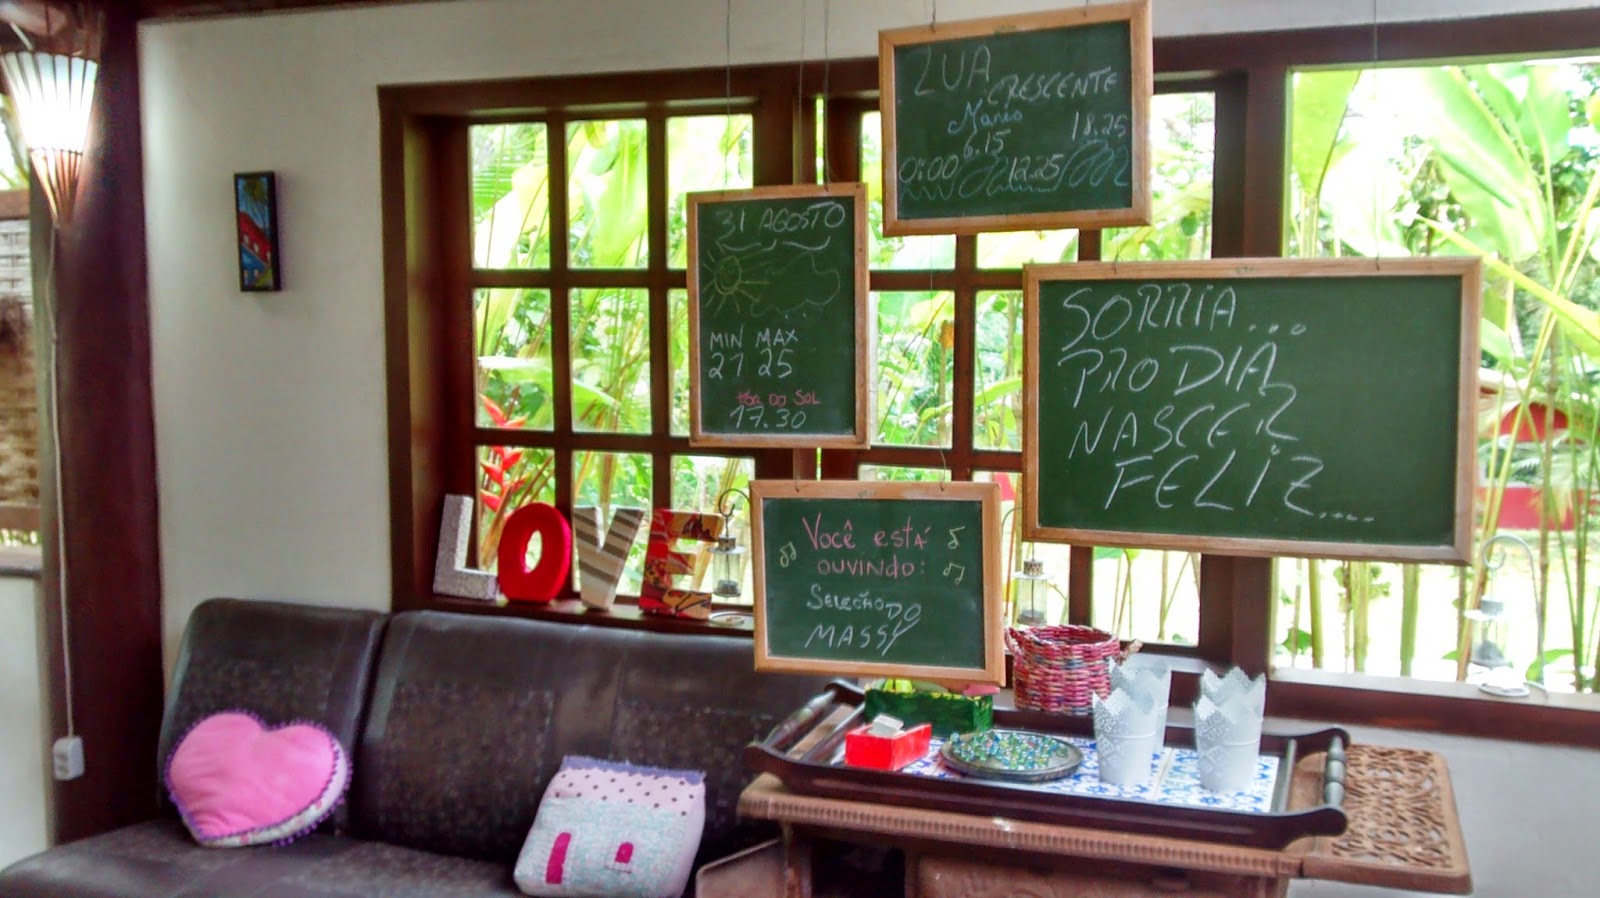 LUA
CRESCENTE
Marés
6.15 18.25
0:00 12.25
31 AGOSTO
MIN MAX
21 25
POR DO SOL
17.30
SORRIA...
PRO DIA
NASCER
FELIZ....
Você está
ouvindo:
SELEÇÃO DO
MASSY
LOVE